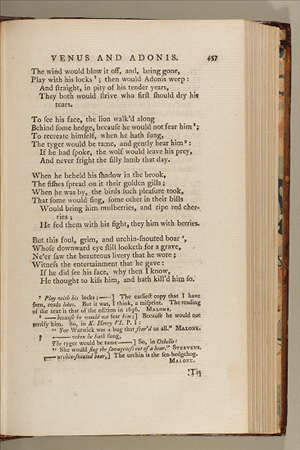 VENUS AND ADONIS. 457
The wind would blow it off, and, being gone,
Play with his locks ⁷; then would Adonis weep:
And ſtraight, in pity of his tender years,
They both would ſtrive who firſt ſhould dry his
tears.
To ſee his face, the lion walk'd along
Behind ſome hedge, becauſe he would not fear him ⁸;
To recreate himſelf, when he hath ſung,
The tyger would be tame, and gently hear him ⁹:
If he had ſpoke, the wolf would leave his prey,
And never fright the ſilly lamb that day.
When he beheld his ſhadow in the brook,
The fiſhes ſpread on it their golden gills;
When he was by, the birds ſuch pleaſure took,
That ſome would ſing, ſome other in their bills
Would bring him mulberries, and ripe red cher-
ries;
He fed them with his ſight, they him with berries.
But this foul, grim, and urchin-ſnouted boar ¹,
Whoſe downward eye ſtill looketh for a grave,
Ne'er ſaw the beauteous livery that he wore;
Witneſs the entertainment that he gave:
If he did ſee his face, why then I know,
He thought to kiſs him, and hath kill'd him ſo.
⁷ Play with his locks;—] The earlieſt copy that I have
ſeen, reads lokes. But it was, I think, a miſprint. The reading
of the text is that of the edition in 1636. MALONE.
⁸ —becauſe he would not fear him;] Becauſe he would not
terrify him. So, in K. Henry VI. P. I:
"For Warwick was a bug that fear'd us all." MALONE.
⁹ —when he hath ſung,
The tyger would be tame—] So, in Othello:
"She would ſing the ſavageneſs out of a bear." STEEVENS.
¹ —urchin-ſnouted boar,] The urchin is the ſea-hedgehog.
MALONE.